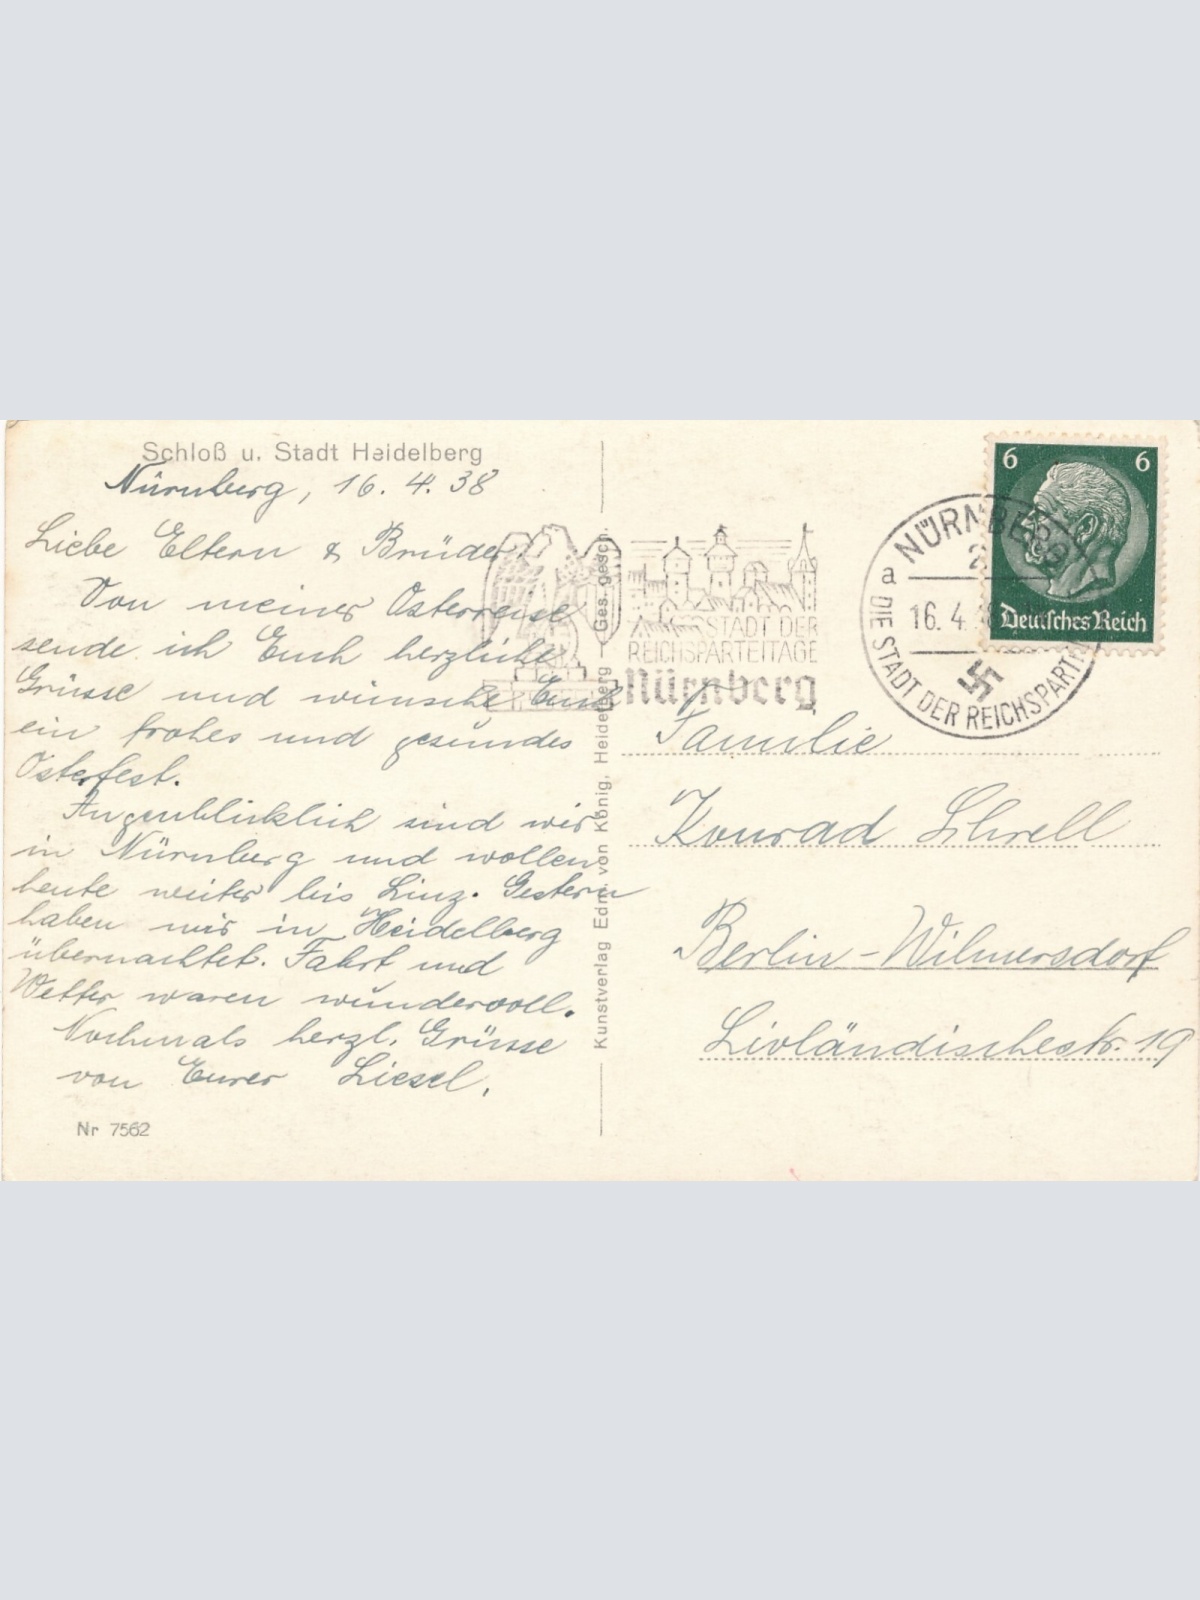 Schloß u. Stadt Heidelberg
Nürnberg, 16. 4. 38
Liebe Eltern & Brüder!
Von meiner Osterreise
sende ich Euch herzliche
Grüsse und wünsche Euch
ein frohes und gesundes
Osterfest.
Augenblicklich sind wir
in Nürnberg und wollen
heute weiter bis Linz. Gestern
haben wir in Heidelberg
übernachtet. Fahrt und
Wetter waren wundervoll.
Nochmals herzl. Grüsse
von Eurer Liesel.
Nr 7562
Kunstverlag Edm. von König, Heidelberg – Ges. gesch.
STADT DER
REICHSPARTEITAGE
Nürnberg
NÜRNBERG
2
a
16. 4.
DIE STADT DER REICHSPARTEI
6 6
Deutsches Reich
Familie
Konrad Schrell
Berlin-Wilmersdorf
Livländischestr. 19